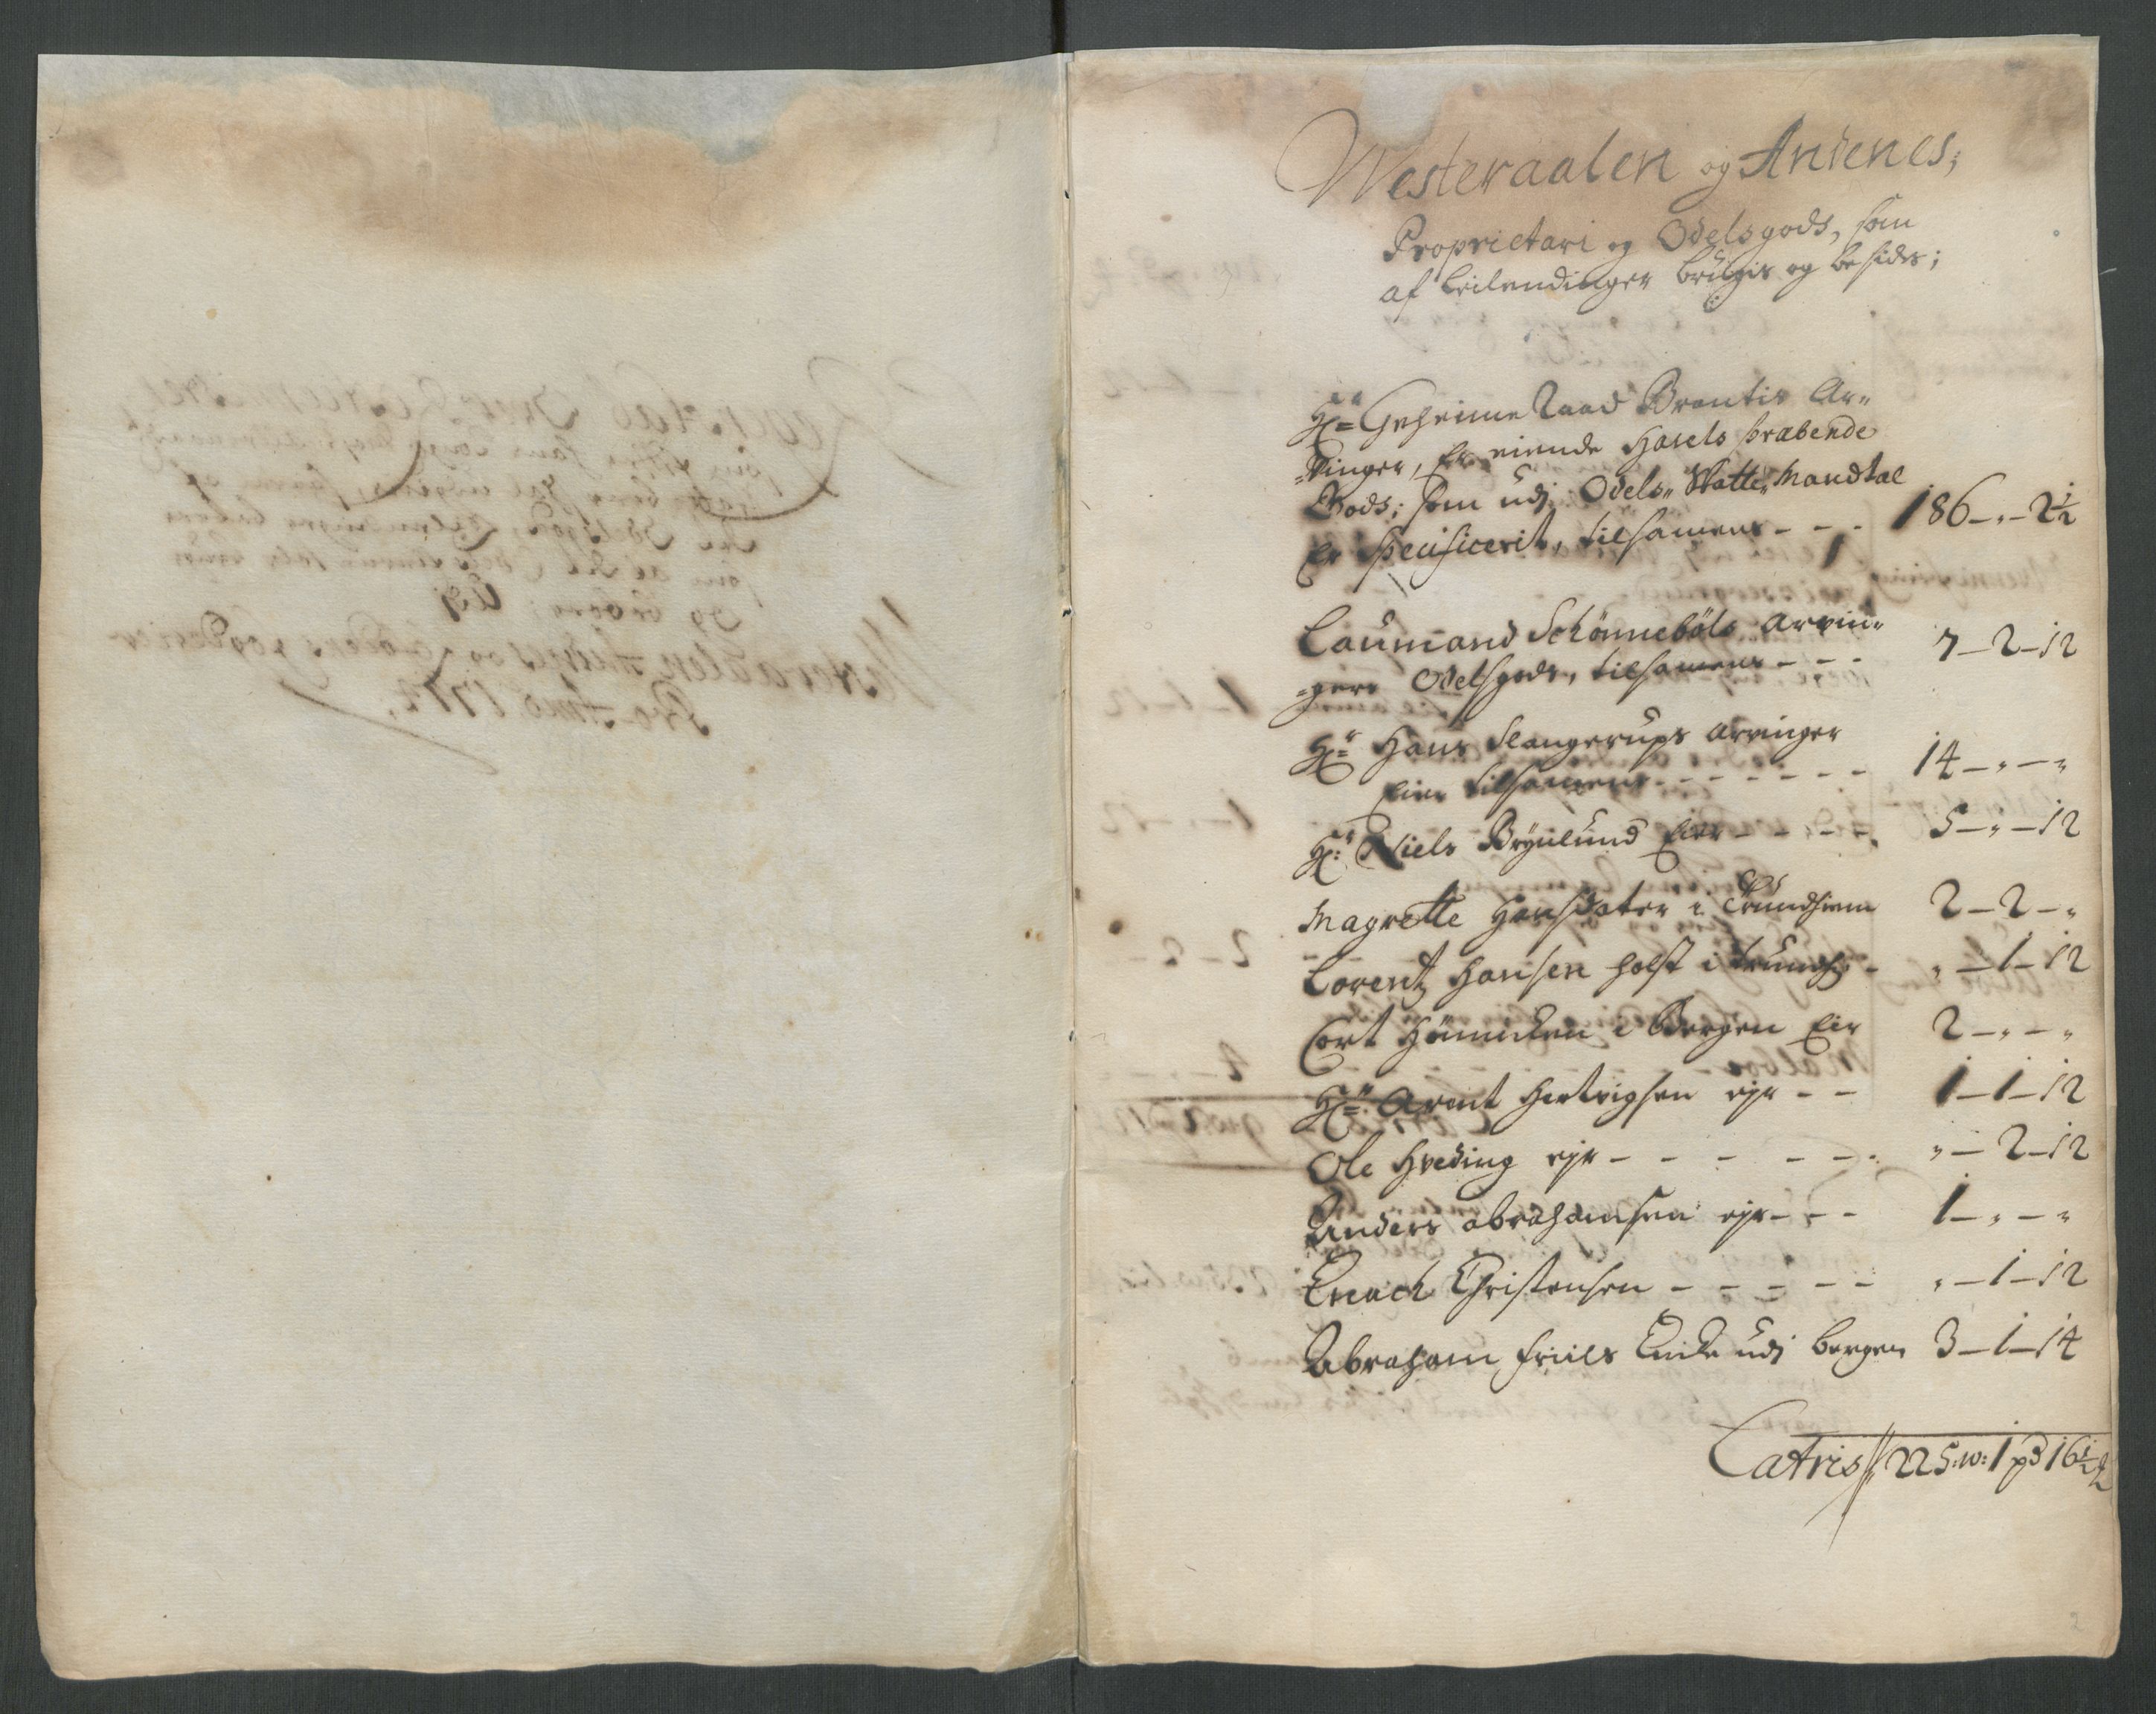 Westeraalen og Andenes;
Proprietari og Odelsgods, som
af Leilendinger brugis og besides;
Hr: Geheime Raad Brantis Ar„
„vinger, Er eiende Hasels præbende
Gods; som udj Odels„ Skatte„ Mandtal
Er Specificerit, tilsamens - - - 186 - „ - 2½
Laumand Schönnebøls Arvin„
„gers Odelsgods, tilsamens - - - 7 - 2 - 12
Hr: Hans Slangerups Arvinger
Eier tilsamens - - - - - - - 14 - „ - „
Hr: Niels Bryulund Eier - - - - - 5 - „ - 12
Magrette Hansdater i Trundhiem 2 - 2 - „
Lorentz Hansen Holst i Trundh: - „ - 1 - 12
Cort Hönniken i Bergen Eir 2 - „ - „
Hr: Arent Hartvigsen ejr - - 1 - 1 - 12
Ole Hveding ejr - - - - - - „ - 2 - 12
Anders Abrahamsen ejr - - - 1 - „ - „
Enoch Christensen - - - - - „ - 1 - 12
Abraham Friils Encke udj Bergen 3 - 1 - 14
Latris 225 w: 1 pd 16½
2